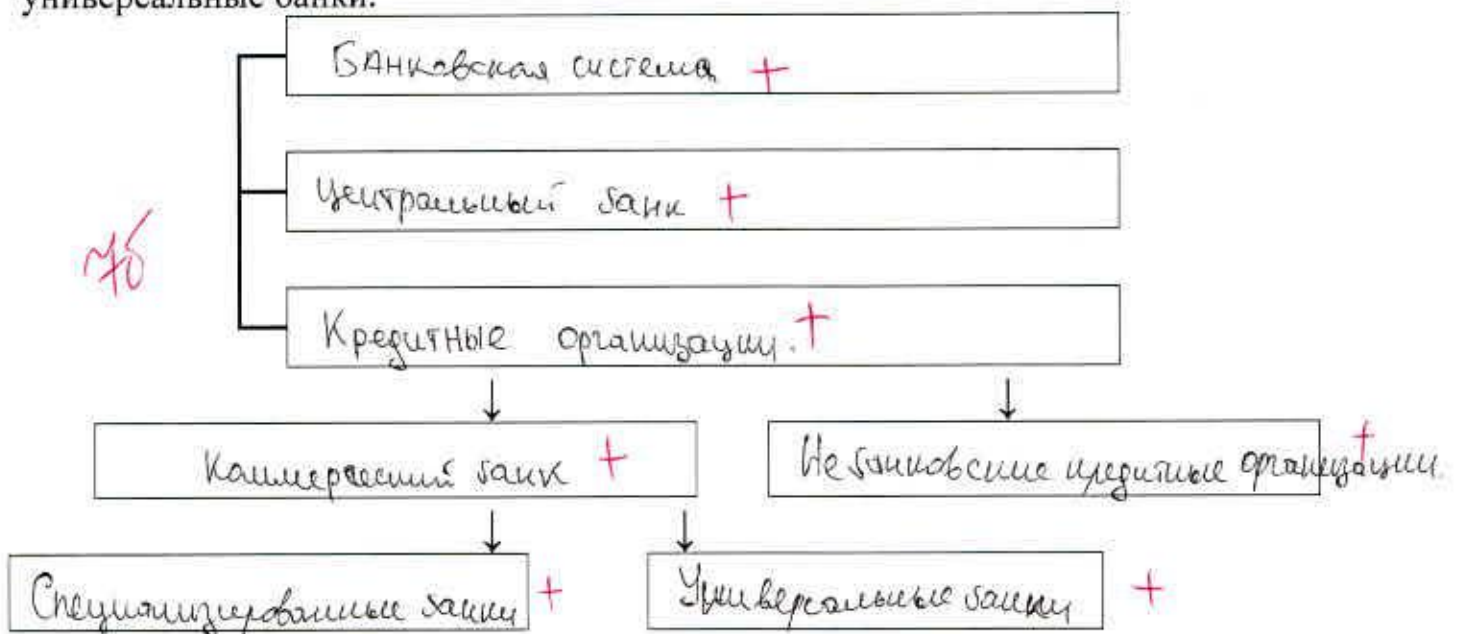 универсальные банки.
Банковская система +
Центральный банк +
7б
Кредитные организации. +
Коммерческий банк +
Небанковские кредитные организации. +
Специализированные банки +
Универсальные банки +